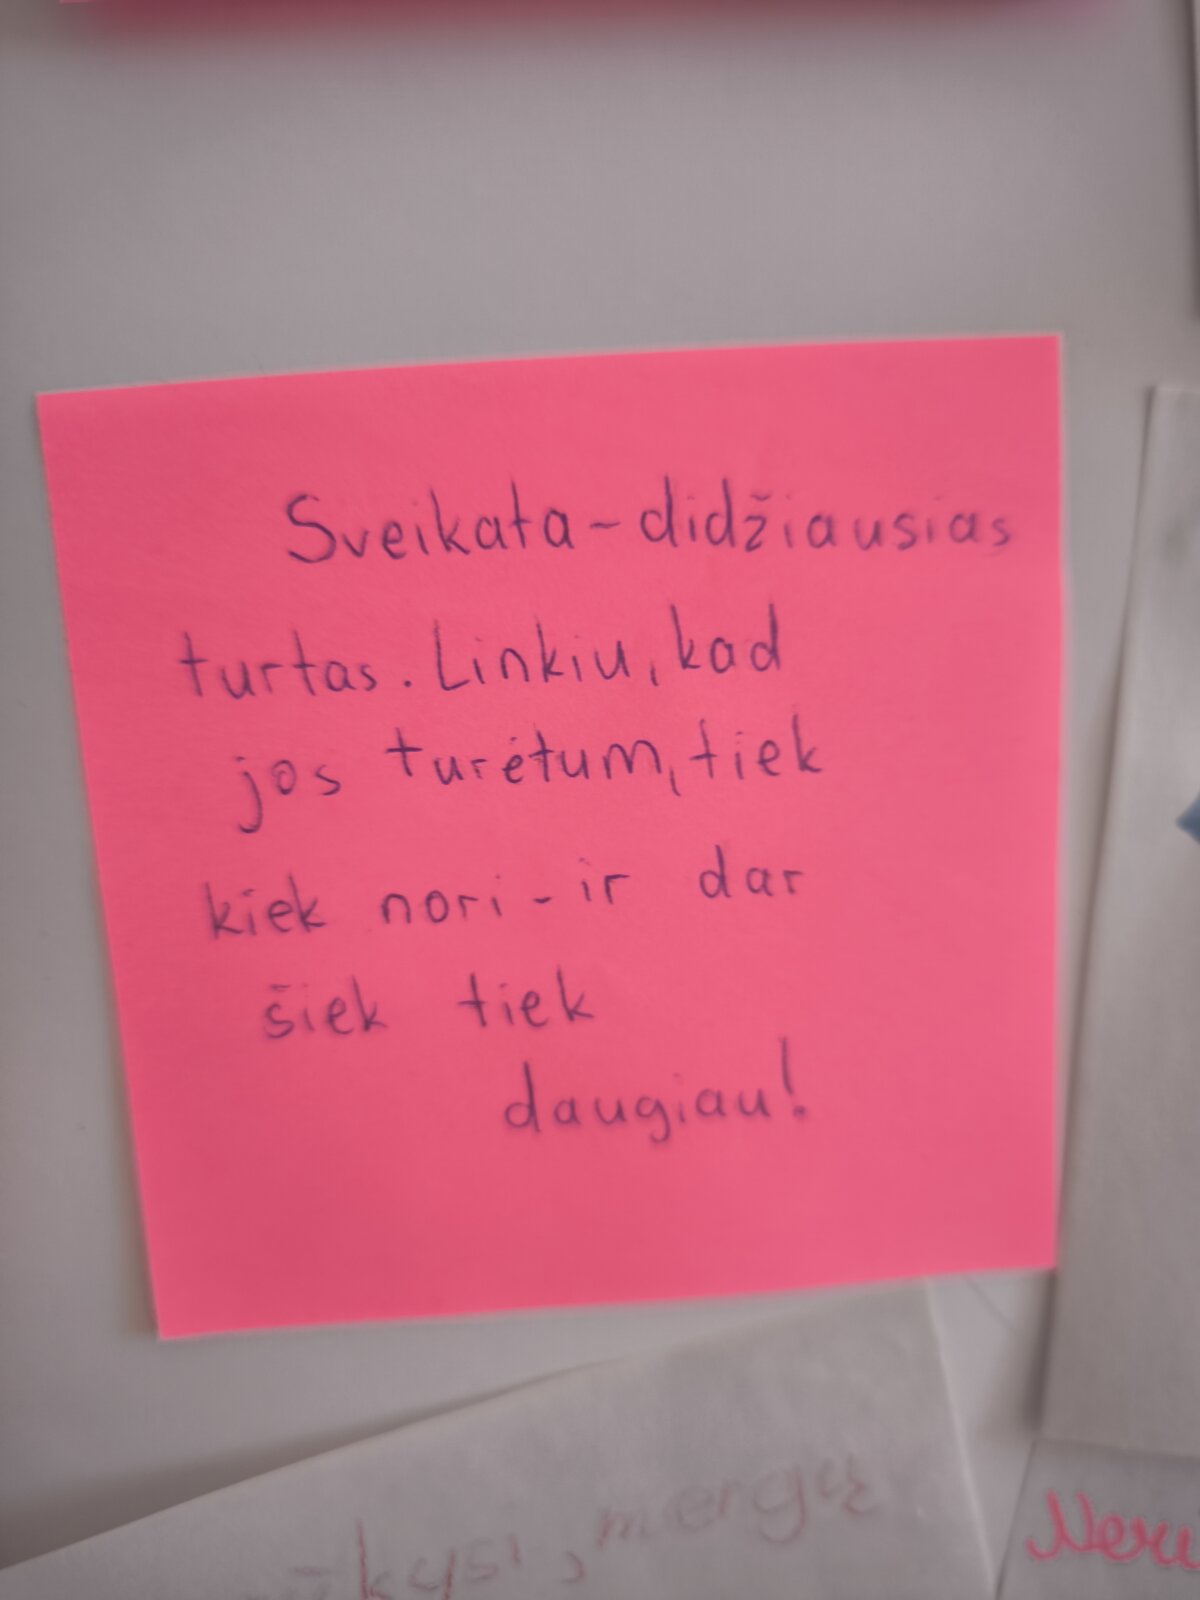 Sveikata - didžiausias
turtas. Linkiu, kad
jos turėtum, tiek
kiek nori - ir dar
šiek tiek
daugiau!